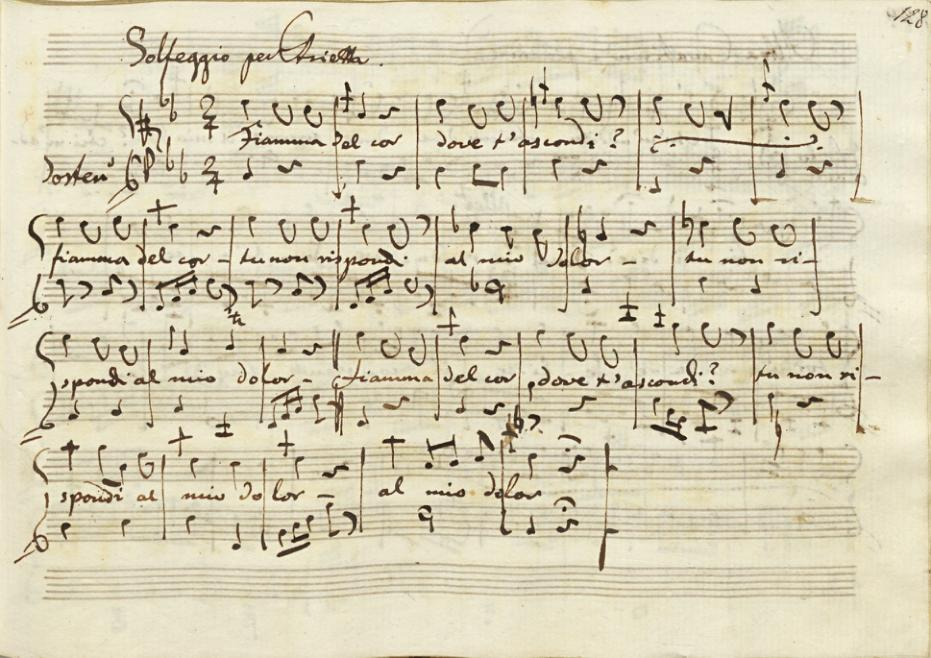 128
Solfeggio per Arietta.
Fiamma del cor dove t'ascondi?
Sosten
fiamma del cor – tu non rispondi al mio dolor – tu non ri–
spondi al mio dolor – fiamma del cor dove t'ascondi? tu non ri–
spondi al mio dolor – al mio dolor